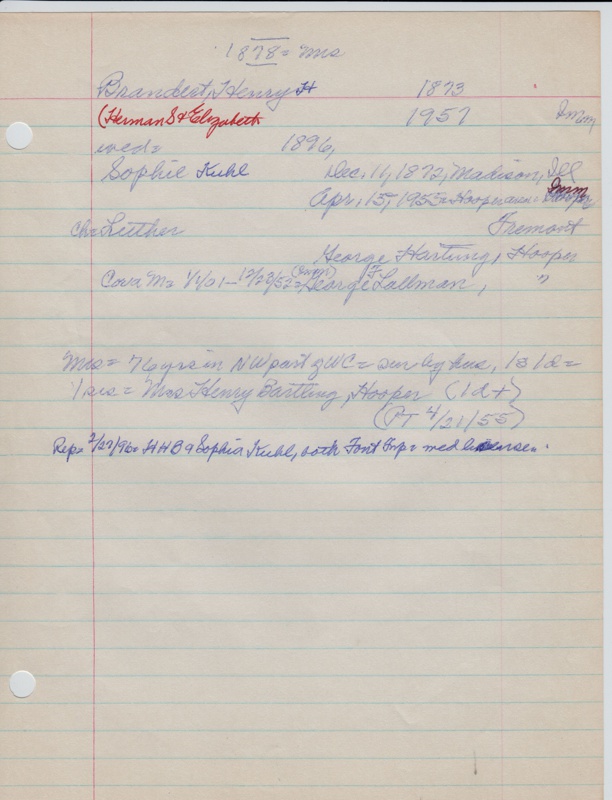 1878 = Mrs
Brandert, Henry H 1873
(Herman S & Elizabeth 1957 Imm
wed = 1896,
Sophie Kuhl Dec. 11, 1872, Madison, Ill
Apr. 15, 1955 = Hooper area = Imm
ch = Luther Fremont
George Hartung, Hooper
Cora M = 1/1/01 - 12/23/52 = George F Lallman, "
Mrs = 76 yrs in NW part of WC = sur by hus, 1s 1d =
1 sis = Mrs Henry Bartling, Hooper (1d+)
(PT 4/21/55)
Rep = 2/27/96 = HHB & Sophia Kuhl, both Font Twp = wed license.